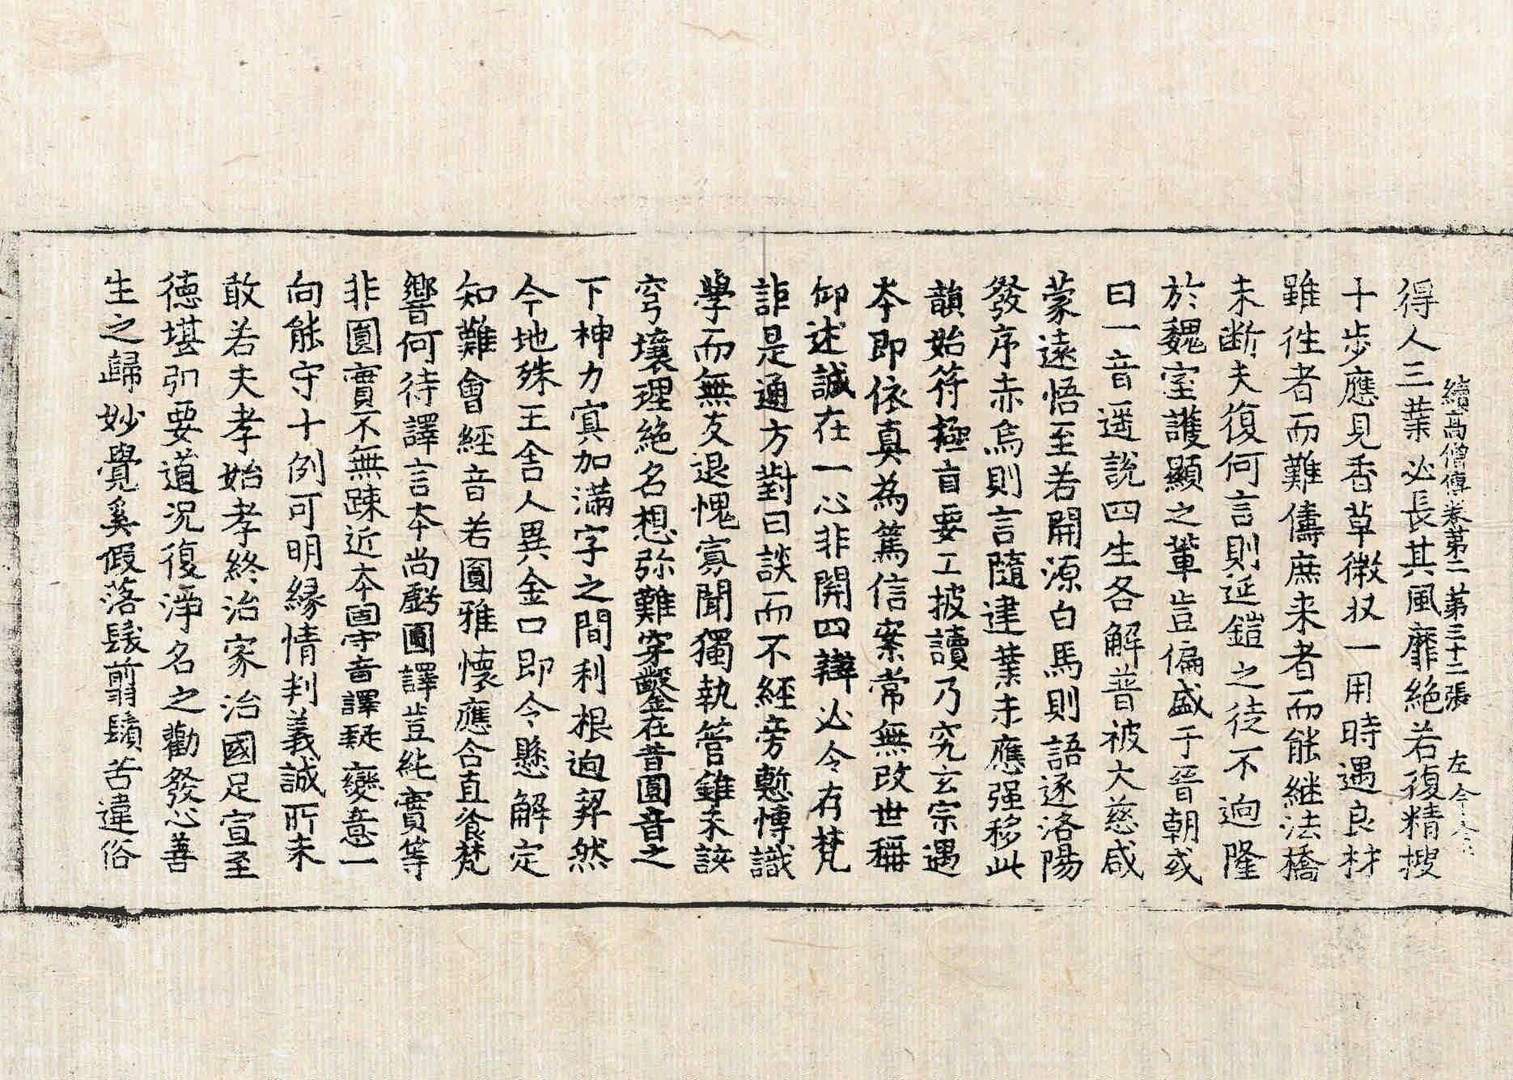 續高僧傳卷第二 第三十二張 左
得人三業必長其風靡絶若復精搜
十步應見香草微收一用時遇良材
雖徃者而難儔庶来者而能継法橋
未断夫復何言則延鎧之徒不逈隆
於魏室護顯之軰豈偏盛于晉朝或
曰一音遥說四生各解普被大慈咸
蒙遠悟至若開源白馬則語逐洛陽
發序赤烏則言隨建業未應强移此
韻始符極旨要工披讀乃究玄宗遇
夲即依真為篤信案常無改世稱
仰述誠在一心非關四辯必令存梵
詎是通方對曰談而不經旁慙博識
學而無友退愧寡聞獨執管錐未該
穹壤理絶名想弥難穿鑿在昔圓音之
下神力㝠加滿字之間利根逈契然
今地殊王舍人異金口即令懸解定
知難會經音若圓雅懷應合直飡梵
響何待譯言夲尚虧圓譯豈純實等
非圓實不無踈近夲固守音譯疑變意一
向能守十例可明縁情判義誠所未
敢若夫孝始孝終治家治國足宣至
德堪引要道況復淨名之勸發心善
生之歸妙覺奚假落髮翦鬚苦違俗